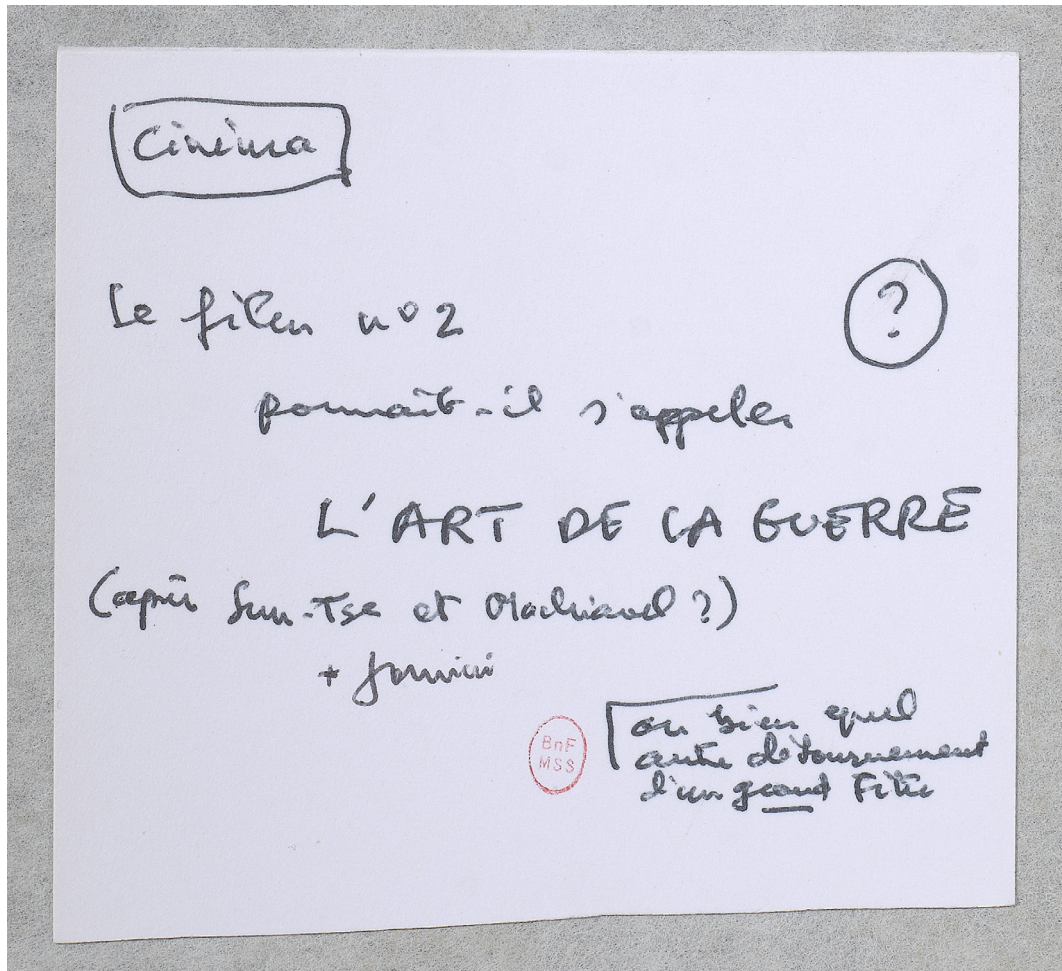 Cinéma
Le film n° 2
?
pourrait-il s'appeler
L'ART DE LA GUERRE
(après Sun-Tse et Machiavel ?)
+ Jomini
ou bien quel
autre détournement
d'un grand titre
BnF
MSS